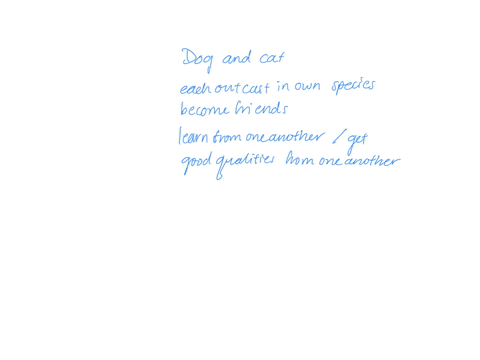 Dog and cat
each outcast in own species
become friends
learn from one another / get
good qualities from one another